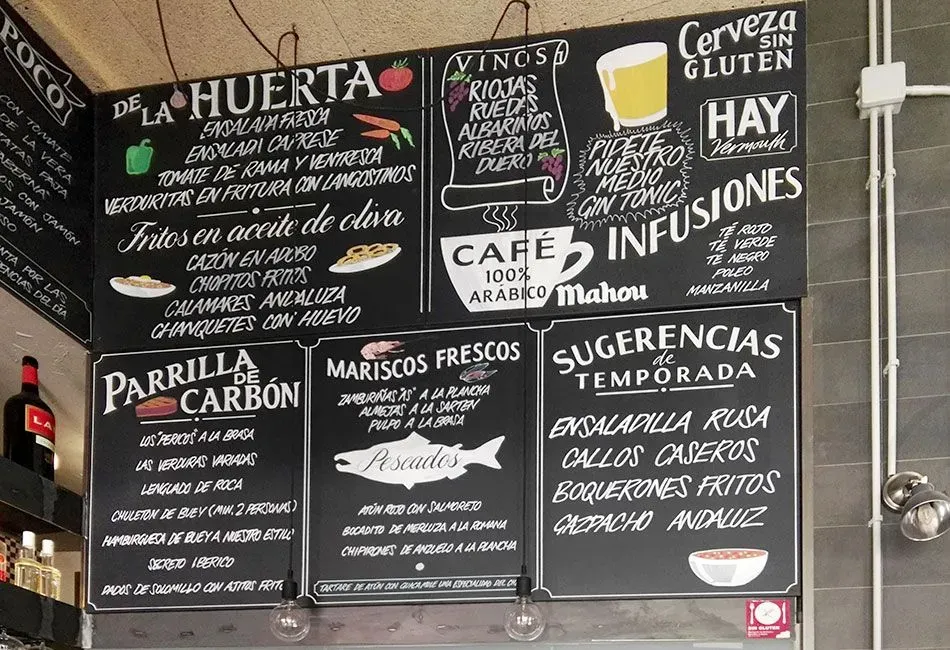 POCO
CON TOMATE
DE LA VERA
CON JAMÓN
JAMÓN
DE LA HUERTA
ENSALADA FRESCA
ENSALADA CAPRESE
TOMATE DE RAMA Y VENTRESCA
VERDURITAS EN FRITURA CON LANGOSTINOS
Fritos en aceite de oliva
CAZÓN EN ADOBO
CHOPITOS FRITOS
CALAMARES ANDALUZA
CHANQUETES CON HUEVO
VINOS
RIOJAS
RUEDAS
ALBARIÑOS
RIBERA DEL
DUERO
CAFÉ
100%
ARÁBICO
Mahou
PIDETE
NUESTRO
MEDIO
GIN TONIC
Cerveza
SIN
GLUTEN
HAY
Vermouth
INFUSIONES
TÉ ROJO
TÉ VERDE
TÉ NEGRO
POLEO
MANZANILLA
PARRILLA
DE
CARBÓN
LOS "PERICOS" A LA BRASA
LAS VERDURAS VARIADAS
LENGUADO DE ROCA
CHULETON DE BUEY (MIN. 2 PERSONAS)
HAMBURGUESA DE BUEY A NUESTRO ESTILO
SECRETO IBERICO
DADOS DE SOLOMILLO CON AJITOS FRITOS
MARISCOS FRESCOS
ZAMBURIÑAS "AS" A LA PLANCHA
ALMEJAS A LA SARTEN
PULPO A LA BRASA
Pescados
ATÚN ROJO CON SALMOREJO
BOCADITO DE MERLUZA A LA ROMANA
CHIPIRONES DE ANZUELO A LA PLANCHA
TARTARE DE ATÚN CON GUACAMOLE UNA ESPECIALIDAD DEL
SUGERENCIAS
de
TEMPORADA
ENSALADILLA RUSA
CALLOS CASEROS
BOQUERONES FRITOS
GAZPACHO ANDALUZ
SIN GLUTEN